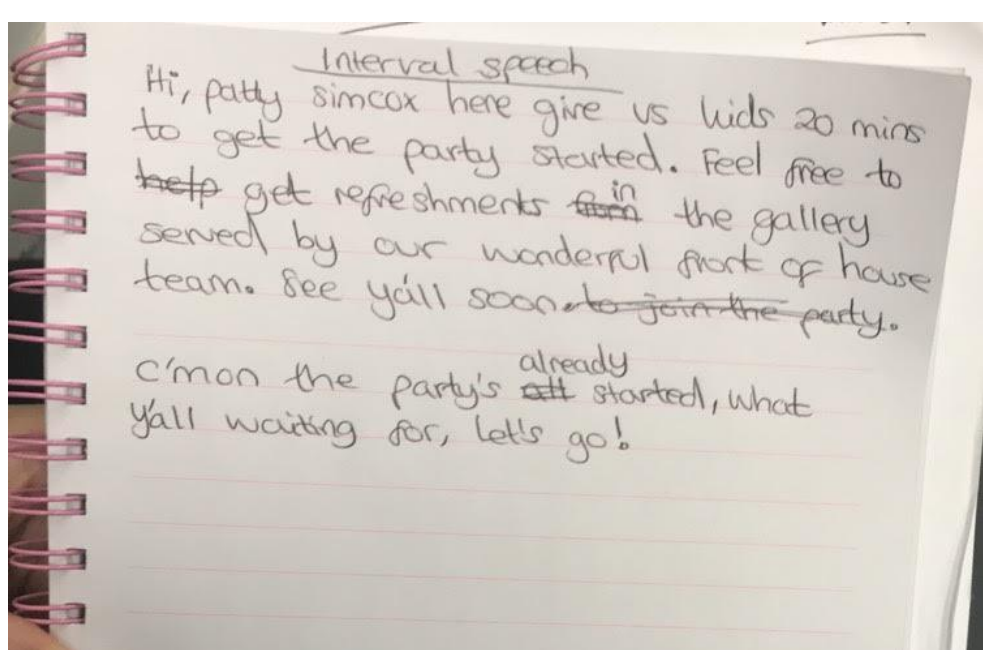 Interval speech
Hi, patty simcox here give us kids 20 mins
to get the party started. Feel free to
help get refreshments from in the gallery
served by our wonderful front of house
team. See y'all soon. to join the party.
C'mon the party's att already started, what
y'all waiting for, let's go!